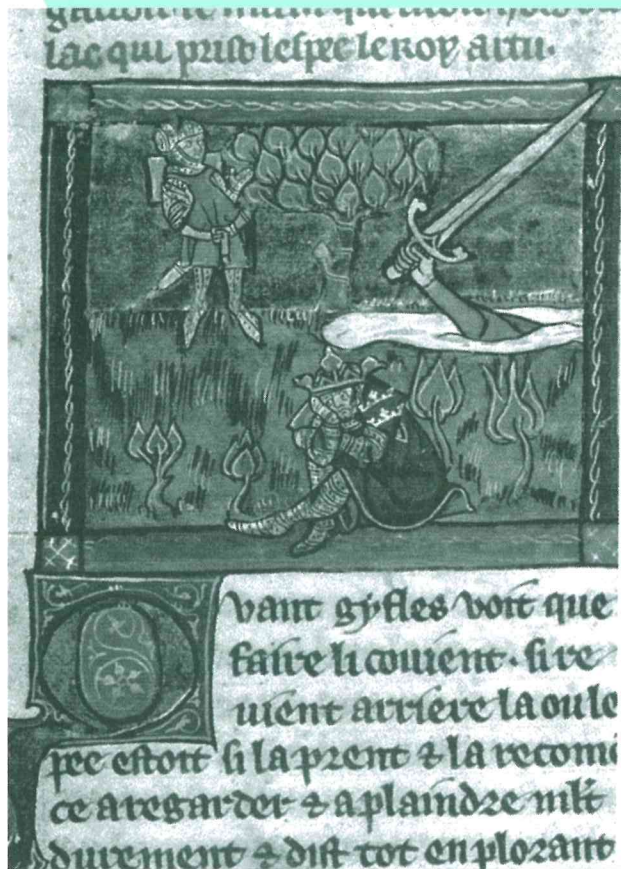 lac qui prist lespee le roy artu.
Quant gyfles voit que
faire li couient. si re
uient arriere la ou le
pee estoit si la prent ⁊ la recom̄
ce a regarder ⁊ a plaindre ml̄t
durement ⁊ dist tot en plorant